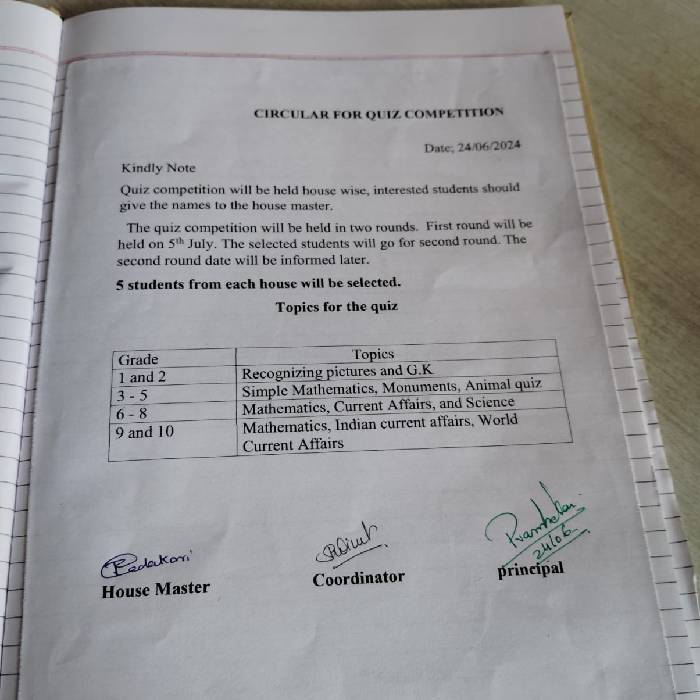 CIRCULAR FOR QUIZ COMPETITION
Date; 24/06/2024
Kindly Note
Quiz competition will be held house wise, interested students should
give the names to the house master.
The quiz competition will be held in two rounds. First round will be
held on 5th July. The selected students will go for second round. The
second round date will be informed later.
5 students from each house will be selected.
Topics for the quiz
Grade Topics
1 and 2 Recognizing pictures and G.K
3 - 5 Simple Mathematics, Monuments, Animal quiz
6 - 8 Mathematics, Current Affairs, and Science
9 and 10 Mathematics, Indian current affairs, World
Current Affairs
24/06
House Master Coordinator principal